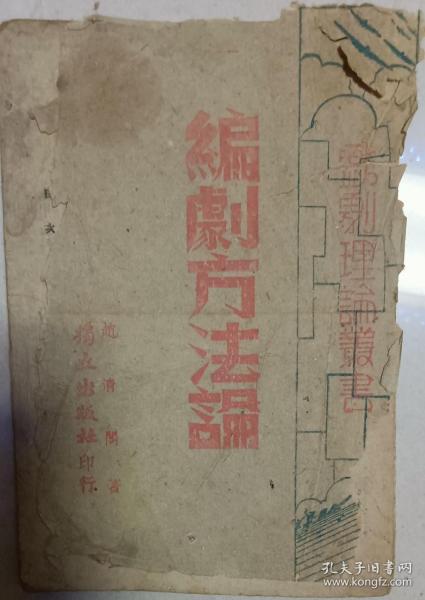 戲劇理論叢書
編劇方法論
趙清閣著
獨立出版社印行
目次
孔夫子旧书网
www.kongfz.com